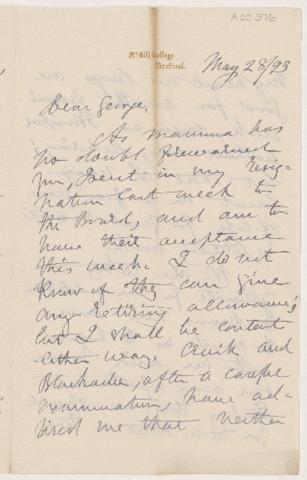 Acc 976
McGill College,
Montreal.
May 28/93
Dear George,
As mamma has
no doubt
you, I sent in my resig-
nation last week to
the Board, and am to
have their acceptance
this week. I do not
know if they can give
any retiring allowance;
but I shall be content
either way. Craik and
Blackader, after a careful
examination, have ad-
vised me that neither